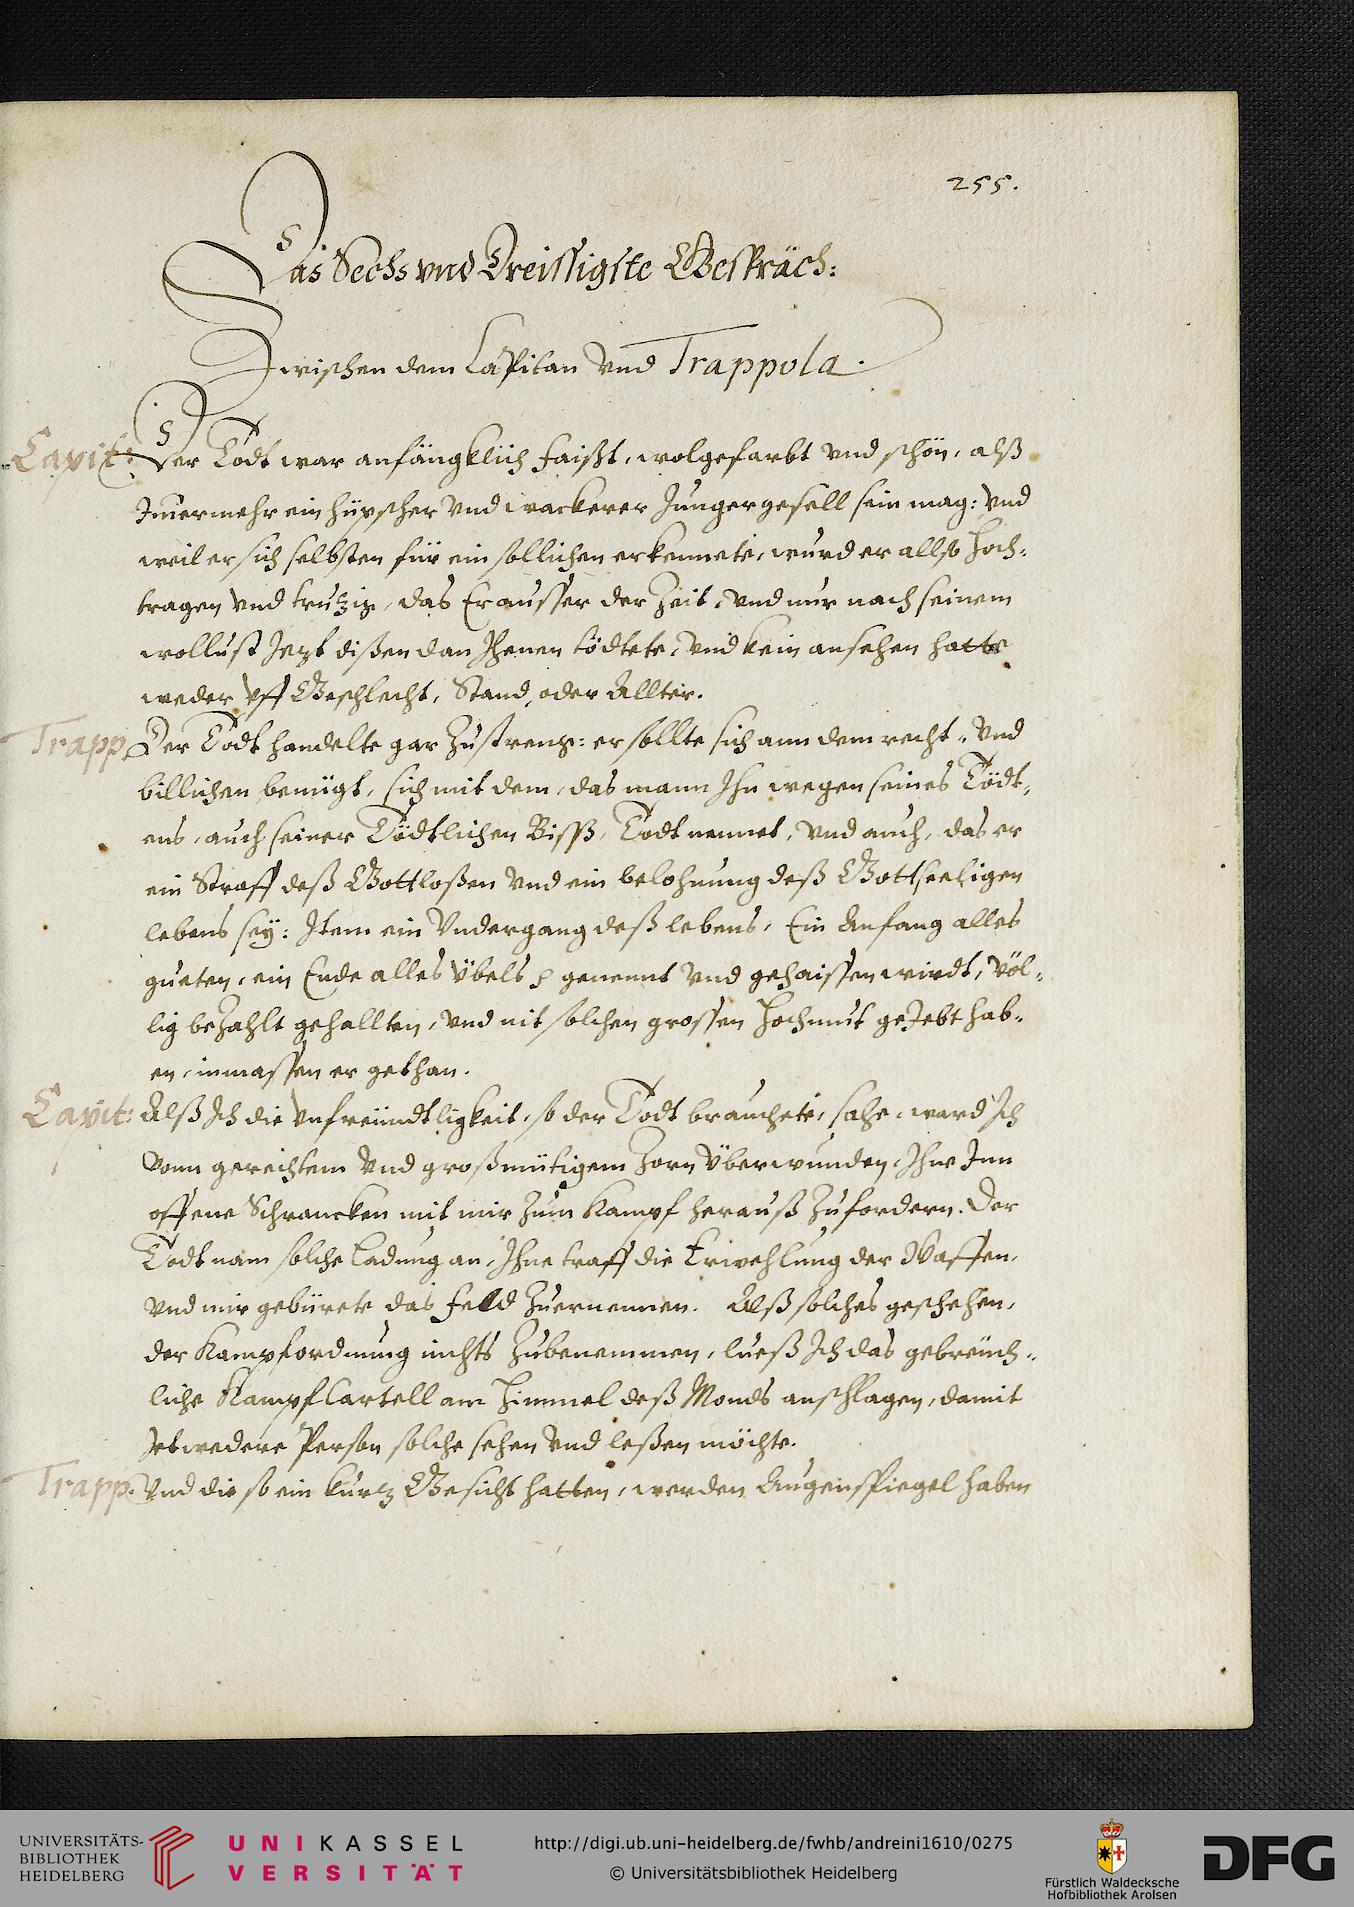 255.
Das Sechs vnd Dreissigste Gespräch:
Zwischen dem Capitan Vnd Trappola.
Capit: Der Todt war anfängklich faißt, wolgefarbt vnd schön, alß
Jmermehr ein hüpscher Vnd wackerer Jungergesell sein mag: Vnd
weil er sich selbsten für ein sollichen erkennete, wurd er allso hoch-
tragen Vnd trutzig, das Er ausser der Zeit, Vnd nur nach seinem
wollust Jezt dißen dan Jhenen tödtete, Vnd kein ansehen hatte
weder Vff Geschlecht, Stand, oder Allter.
Trapp. Der Todt handelte gar Zustreng: er sollte sich ann dem recht, Vnd
billichen benügt, sich mit dem, das mann Jhn wegen seines Tödt,
ens, auch seiner Tödtlichen Bisß, Todt nennet, Vnd auch, das er
ein Straff deß Gottloßen Vnd ein belohnung deß Gottseeligen
lebens sey: Jtem ein Vndergang deß lebens, Ein Anfang alles
gueten, ein Ende alles Übels genennt Vnd gehaissen wirdt, Völ-
lig beZahlt gehallten, Vnd nit solchen grossen Hochmut geJebt hab-
en, inmassen er gethan.
Capit: Alß Jch die Vnfreündtligkeit, so der Todt brauchete, sahe, ward Jch
Vonn gerechtem Vnd großmütigem Zorn Überwunden, Jhne Jnn
offene Schrancken mit mir Zum Kampf herauß Zufordern. Der
Todt nam solche Ladung an, Jhne traff die Erwehlung der Waffen,
Vnd mir gebürete das Feld Zuernennen. Alß solches geschehen,
der Kampfordnung nichts Zubenemmen, lueß Jch das gebreüch-
liche Kampf Cartell am Himmel deß Monds anschlagen, damit
Jetwedere Person solche sehen Vnd leßen möchte.
Trapp. Vnd die so ein kurtz Gesicht hatten, werden Augenspiegel haben
UNIVERSITÄTS-
BIBLIOTHEK
HEIDELBERG
UNIKASSEL
VERSITÄT
http://digi.ub.uni-heidelberg.de/fwhb/andreini1610/0275
© Universitätsbibliothek Heidelberg
Fürstlich Waldecksche
Hofbibliothek Arolsen
DFG